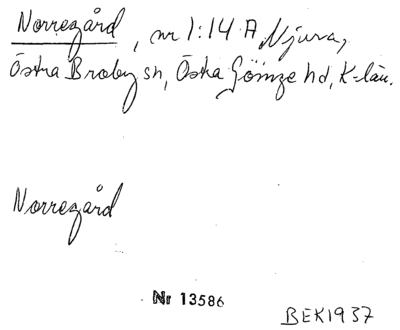 Norregård, nr 1:14 A, Njura,
Östra Broby sn, Östra Göinge hd, K-län.
Norregård
Nr 13586
BEK1937